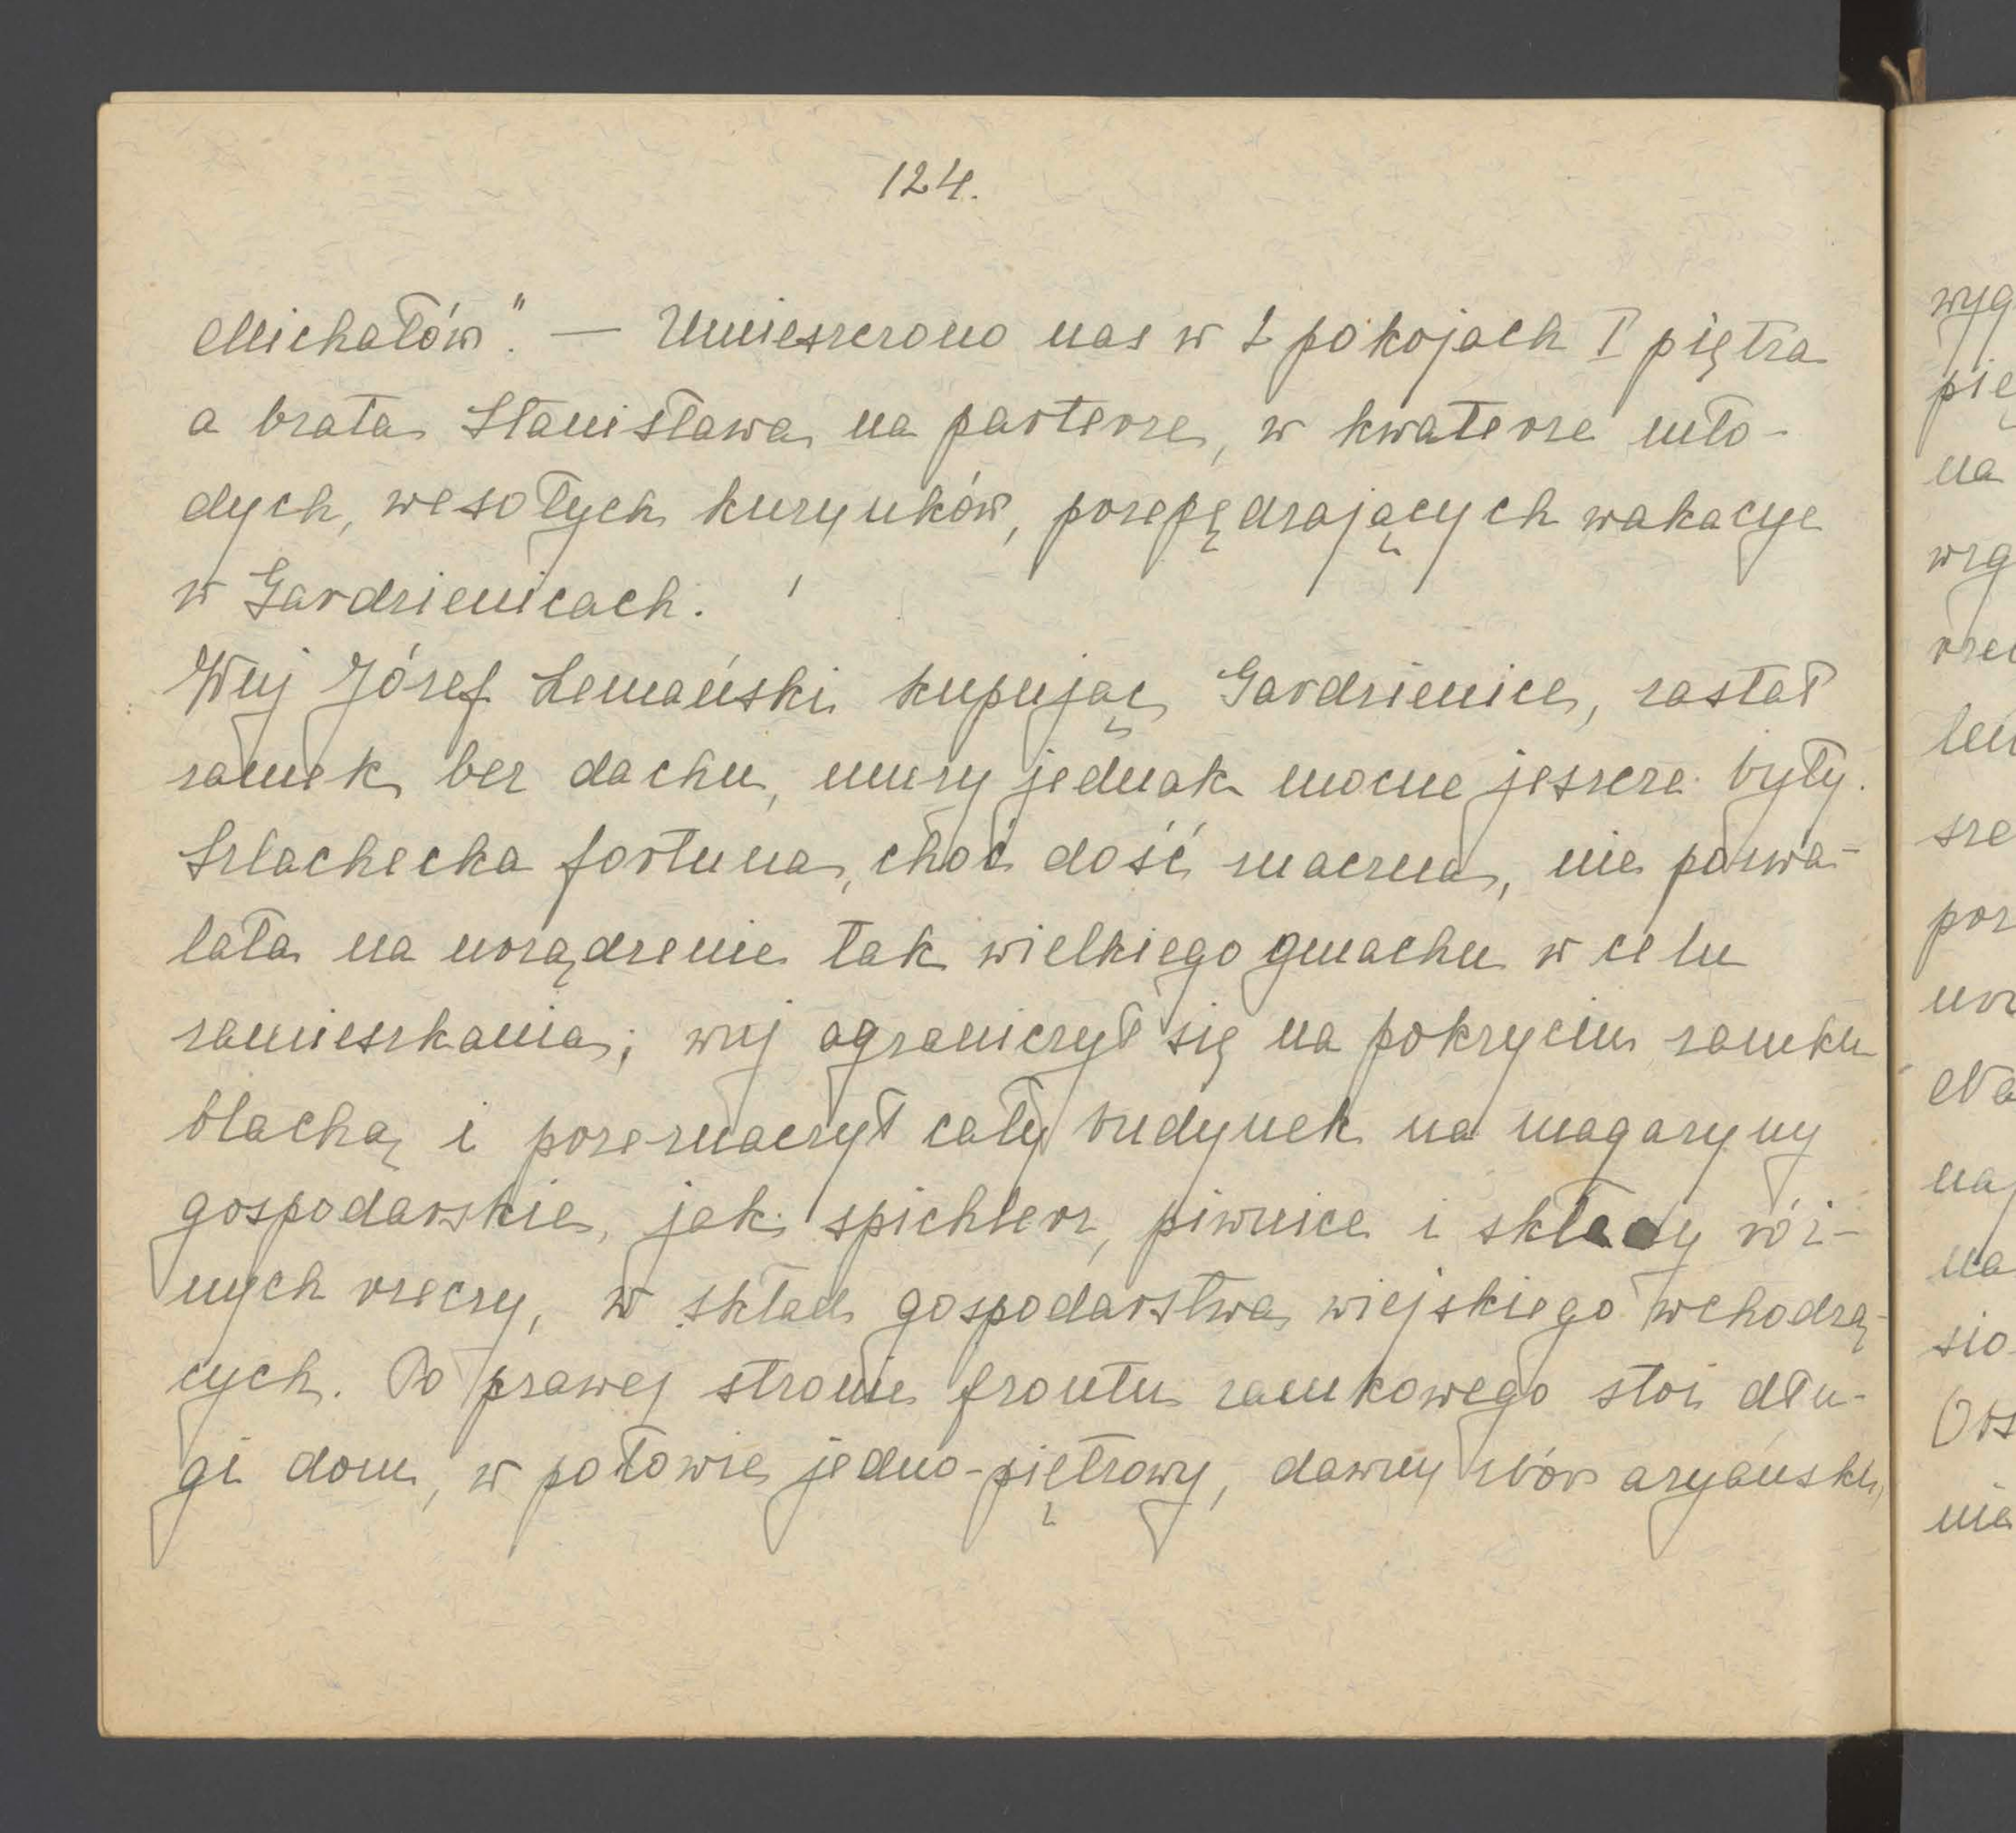 124.
Michałów". — Umieszczono nas w 2 pokojach I piętra
a brata Stanisława na parterze, w kwaterze mło-
dych, wesołych kuzynków, przepędzających wakacye
w Gardzienicach.
Wuj Józef Lemański kupując Gardzienice, zastał
zamek bez dachu, mury jednak mocne jeszcze były.
Szlachecka fortuna, choć dość znaczna, nie pozwa-
lała na urządzenie tak wielkiego gmachu w celu
zamieszkania; wuj ograniczył się na pokryciu zamku
blachą i przeznaczył cały budynek na magazyny
gospodarskie, jak: spichlerz, piwnice i składy róż-
nych rzeczy, w skład gospodarstwa wiejskiego wchodzą-
cych. Po prawej stronie frontu zamkowego stoi dłu-
gi dom, w połowie jedno-piętrowy, dawny zbór aryański,
wyg
pię
na
wzg
rze
len
sze
poz
urz
Na
naj
na
sio
Ors
nie